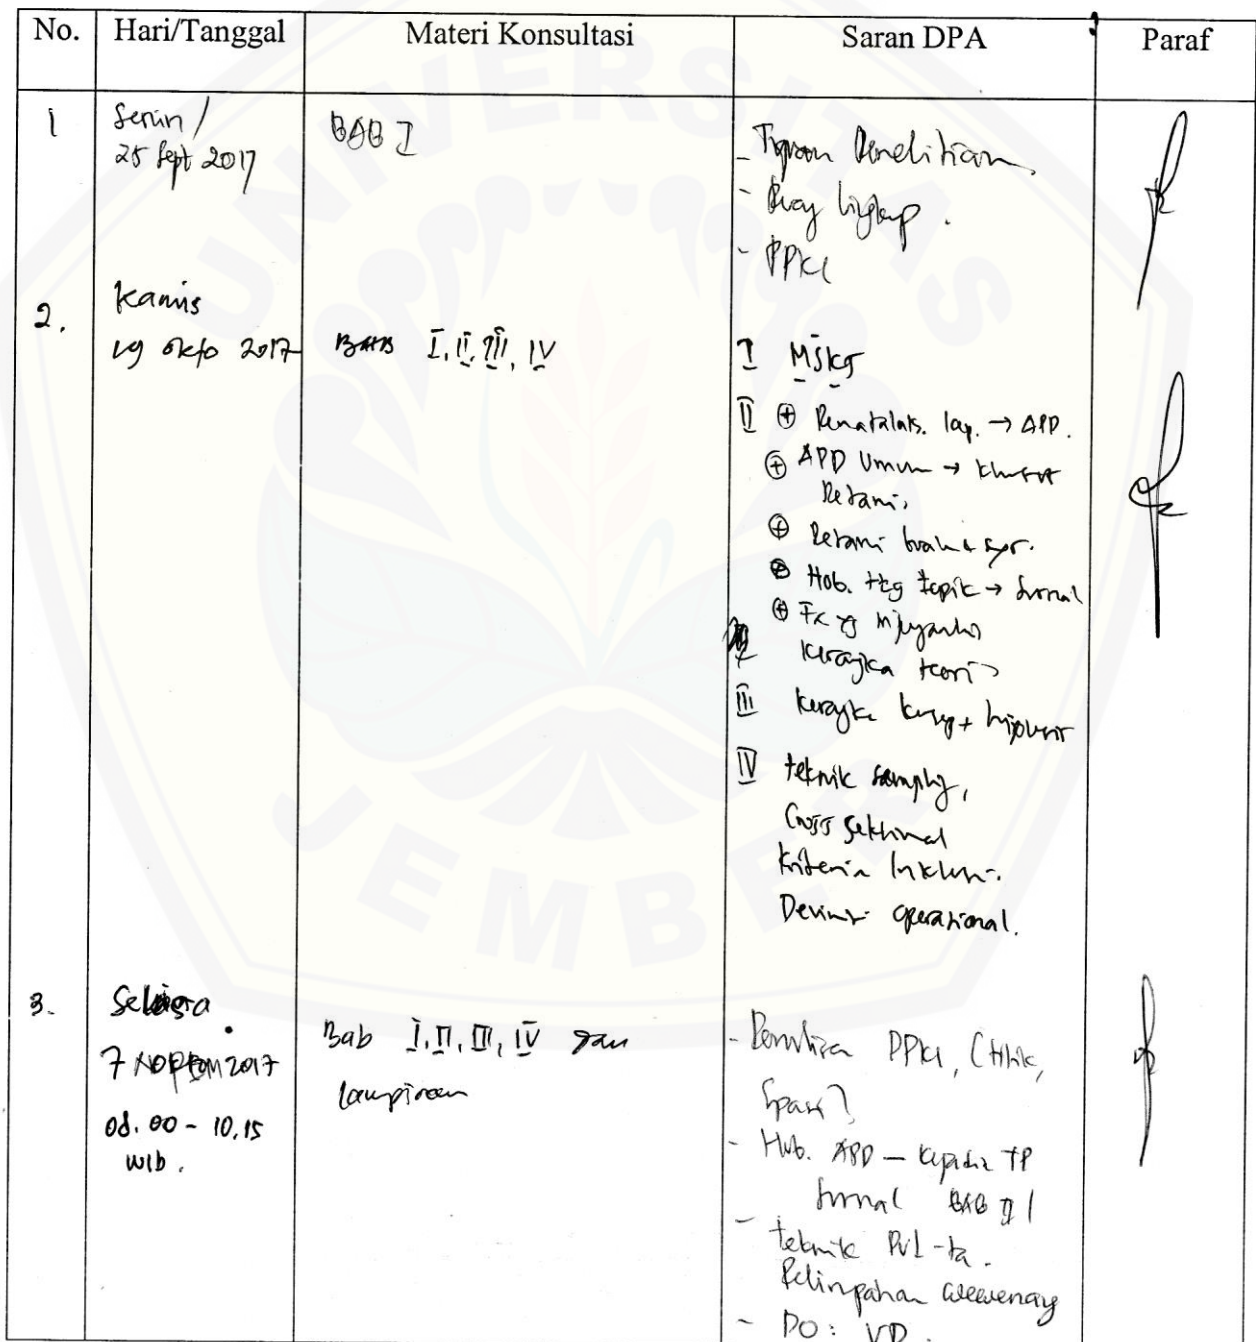 No. Hari/Tanggal Materi Konsultasi Saran DPA Paraf
UNIVERSITAS
JEMBER
1 Senin / BAB I
25 Sept 2017
- Penelitian
- Ruang lingkup.
- PPKI
2. Kamis
19 okto 2017 BAB I, II, III, IV
I MSKS
II ⊕ Penatalaks. lap. → APD.
⊕ APD Umum → khusus
Petani,
⊕ Petani
⊕ Hub. ttg topik → Jurnal
⊕ Fx yg
kerangka teori
III kerangka + hipotesis
IV teknik sampling,
Cross Sektional
Kriteria Inklusi.
operasional.
3. Selasa
7 2017
08.00 - 10.15
WIB.
Bab I, II, III, IV dan
lampiran
- PPKI,
Spasi?
- Hub. APD — TP
Jurnal BAB II
- teknik
Pelimpahan wewenang
- DO: VD.